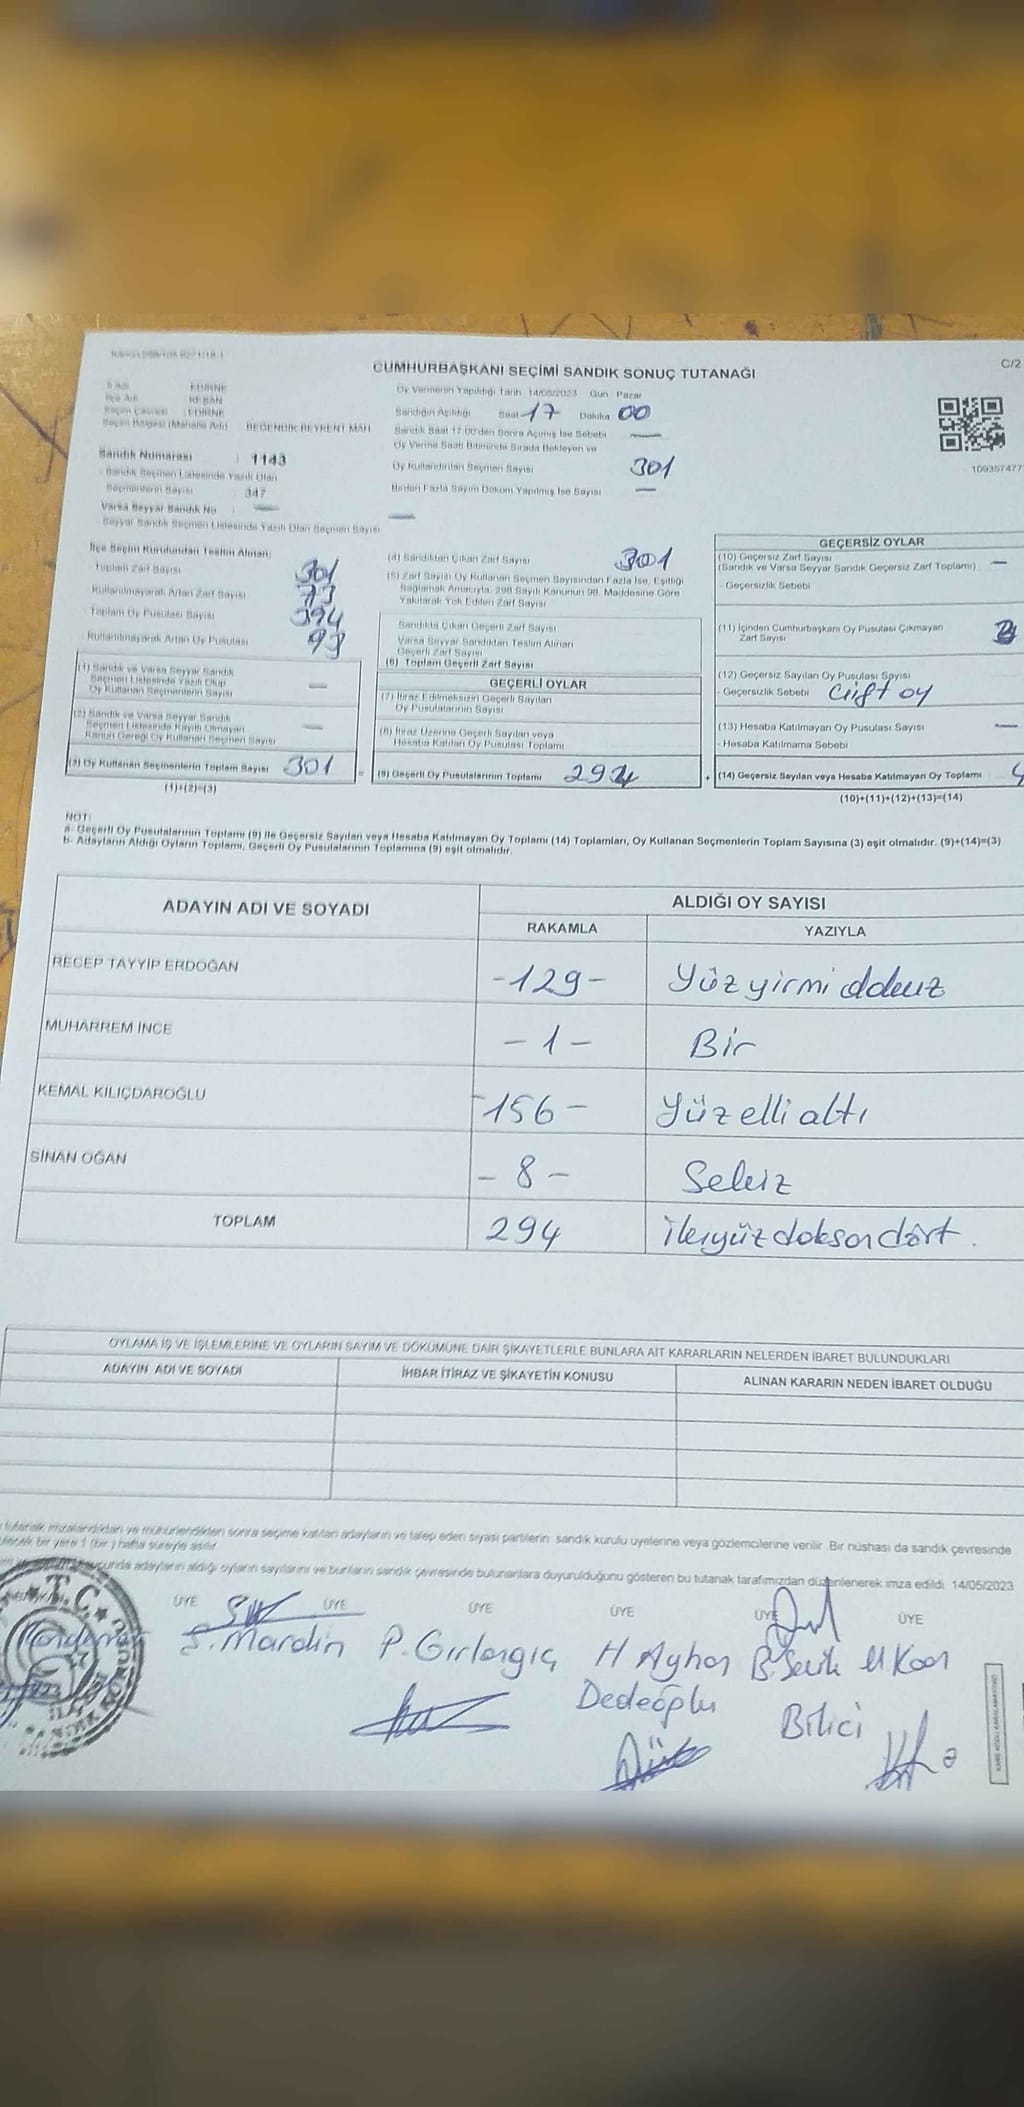 C/2
CUMHURBAŞKANI SEÇİMİ SANDIK SONUÇ TUTANAĞI
EDİRNE
KEŞAN
EDİRNE
BEĞENDİK BEYKENT MAH
Oy Vermenin Yapıldığı Tarih 14/05/2023 Gün Pazar
Sandığın Açıldığı Saat 17 Dakika 00
Sandık Saat 17:00'den Sonra Açılmış İse Sebebi —
Oy Verme Saati Bitiminde Sırada Bekleyen ve
Oy Kullandırılan Seçmen Sayısı 301
Birden Fazla Sayım Döküm Yapılmış İse Sayısı —
109357477
Sandık Numarası : 1143
Sandık Seçmen Listesinde Yazılı Olan
Seçmenlerin Sayısı : 347
Varsa Seyyar Sandık No : —
Seyyar Sandık Seçmen Listesinde Yazılı Olan Seçmen Sayısı —
İlçe Seçim Kurulundan Teslim Alınan;
Toplam Zarf Sayısı
Kullanılmayarak Artan Zarf Sayısı
Toplam Oy Pusulası Sayısı 394
Kullanılmayarak Artan Oy Pusulası 93
(1) Sandık ve Varsa Seyyar Sandık
Seçmen Listesinde Yazılı Olup
Oy Kullanan Seçmenlerin Sayısı —
(2) Sandık ve Varsa Seyyar Sandık
Seçmen Listesinde Kayıtlı Olmayan
Kanun Gereği Oy Kullanan Seçmen Sayısı —
(3) Oy Kullanan Seçmenlerin Toplam Sayısı 301
(1)+(2)=(3)
(4) Sandıktan Çıkan Zarf Sayısı 301
(5) Zarf Sayısı Oy Kullanan Seçmen Sayısından Fazla İse, Eşitliği
Sağlamak Amacıyla, 298 Sayılı Kanunun 98. Maddesine Göre
Yakılarak Yok Edilen Zarf Sayısı
Sandıkta Çıkan Geçerli Zarf Sayısı
Varsa Seyyar Sandıktan Teslim Alınan
Geçerli Zarf Sayısı
(6) Toplam Geçerli Zarf Sayısı
GEÇERLİ OYLAR
(7) İtiraz Edilmeksizin Geçerli Sayılan
Oy Pusulalarının Sayısı
(8) İtiraz Üzerine Geçerli Sayılan veya
Hesaba Katılan Oy Pusulası Toplamı
(9) Geçerli Oy Pusulalarının Toplamı 294
GEÇERSİZ OYLAR
(10) Geçersiz Zarf Sayısı
(Sandık ve Varsa Seyyar Sandık Geçersiz Zarf Toplamı) —
- Geçersizlik Sebebi
(11) İçinden Cumhurbaşkanı Oy Pusulası Çıkmayan
Zarf Sayısı
(12) Geçersiz Sayılan Oy Pusulası Sayısı
- Geçersizlik Sebebi Çift oy
(13) Hesaba Katılmayan Oy Pusulası Sayısı —
- Hesaba Katılmama Sebebi
+ (14) Geçersiz Sayılan veya Hesaba Katılmayan Oy Toplamı
(10)+(11)+(12)+(13)=(14)
NOT:
a- Geçerli Oy Pusulalarının Toplamı (9) ile Geçersiz Sayılan veya Hesaba Katılmayan Oy Toplamı (14) Toplamları, Oy Kullanan Seçmenlerin Toplam Sayısına (3) eşit olmalıdır. (9)+(14)=(3)
b- Adayların Aldığı Oyların Toplamı, Geçerli Oy Pusulalarının Toplamına (9) eşit olmalıdır.
ADAYIN ADI VE SOYADI
ALDIĞI OY SAYISI
RAKAMLA YAZIYLA
RECEP TAYYİP ERDOĞAN -129- Yüz yirmi dokuz
MUHARREM İNCE -1- Bir
KEMAL KILIÇDAROĞLU -156- Yüz elli altı
SİNAN OĞAN -8- Sekiz
TOPLAM 294 ikiyüz doksan dört.
OYLAMA İŞ VE İŞLEMLERİNE VE OYLARIN SAYIM VE DÖKÜMÜNE DAİR ŞİKAYETLERLE BUNLARA AİT KARARLARIN NELERDEN İBARET BULUNDUKLARI
ADAYIN ADI VE SOYADI İHBAR İTİRAZ VE ŞİKAYETİN KONUSU ALINAN KARARIN NEDEN İBARET OLDUĞU
tutanak imzalandıktan ve mühürlendikten sonra seçime katılan adayların ve talep eden siyasi partilerin sandık kurulu üyelerine veya gözlemcilerine verilir. Bir nüshası da sandık çevresinde
bir yere 1 (bir) hafta süreyle asılır.
adayların aldığı oyların sayılarını ve bunların sandık çevresinde bulunanlara duyurulduğunu gösteren bu tutanak tarafımızdan düzenlenerek imza edildi. 14/05/2023
T.C.
ÜYE ÜYE ÜYE ÜYE ÜYE ÜYE
S. Mardin P. Gırlangıç H Ayhan
Dedeoğlu Bilici